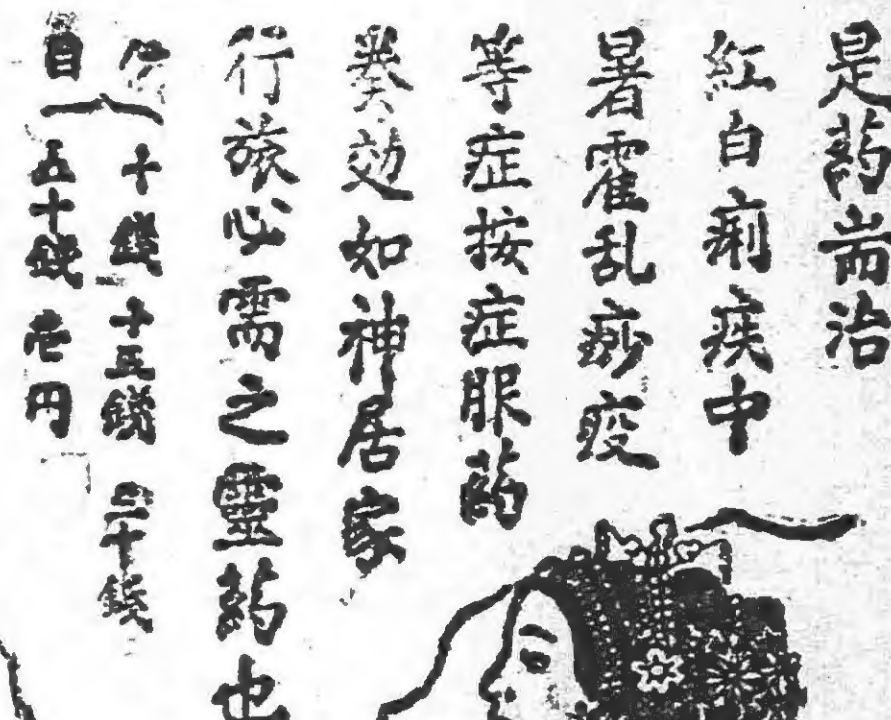 是葯耑治
紅白痢疾中
暑霍乱痧疫
等症按症服葯
奏効如神居家
行旅必需之靈葯也
十錢 十五錢 三十錢
自 五十錢 壱円